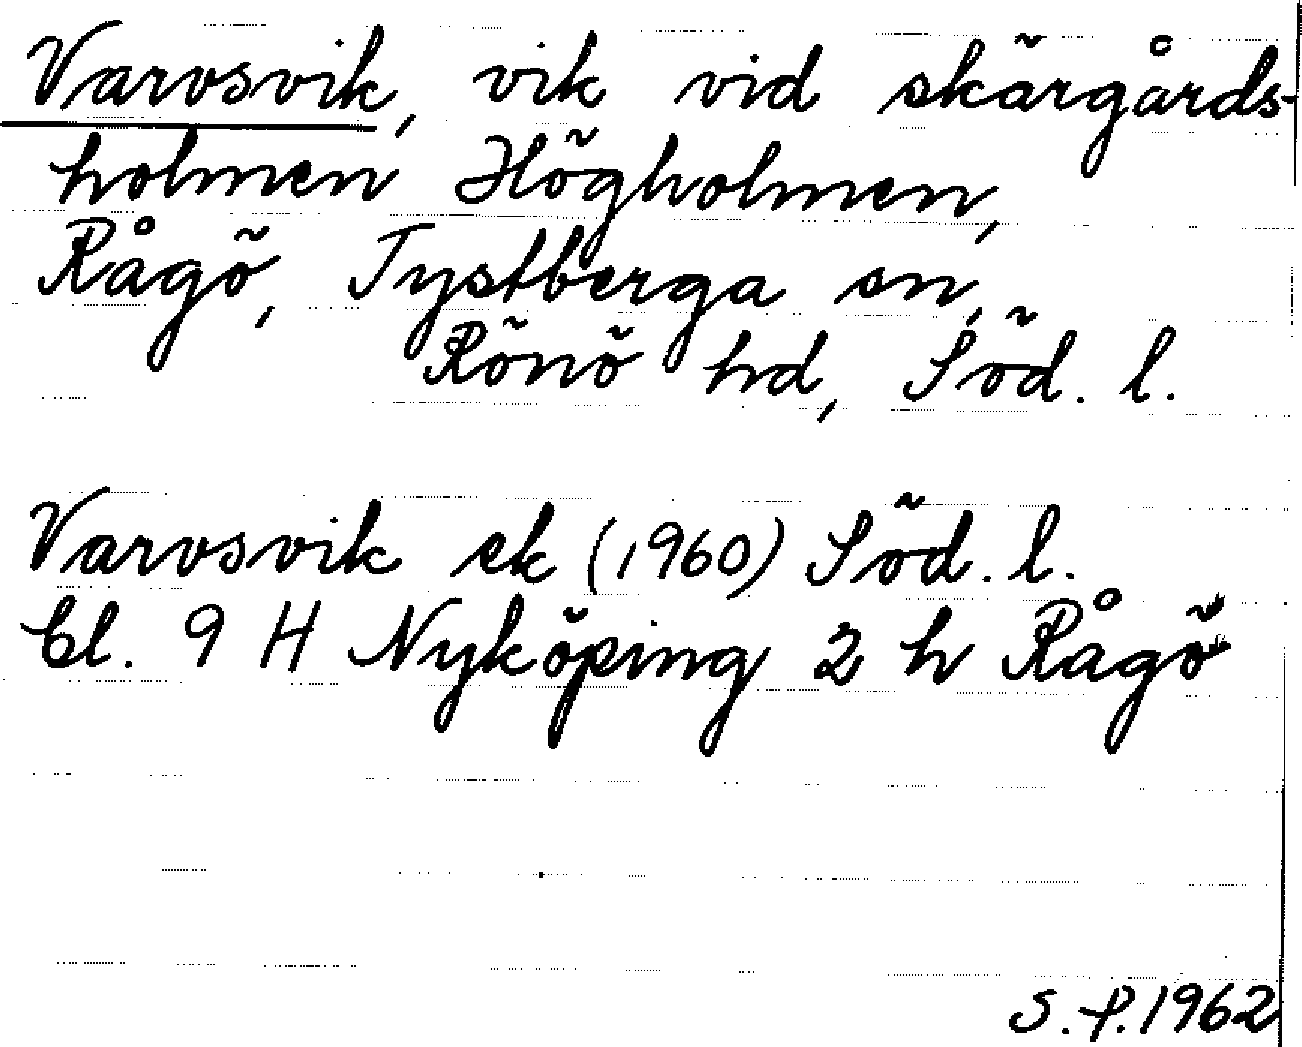 Varvsvik, vik vid skärgårds-
holmen Högholmen,
Rågö, Tystberga sn,
Rönö hd, Söd. l.
Varvsvik ek (1960) Söd. l.
Bl. 9 H Nyköping 2 h Rågö
S.P. 1962